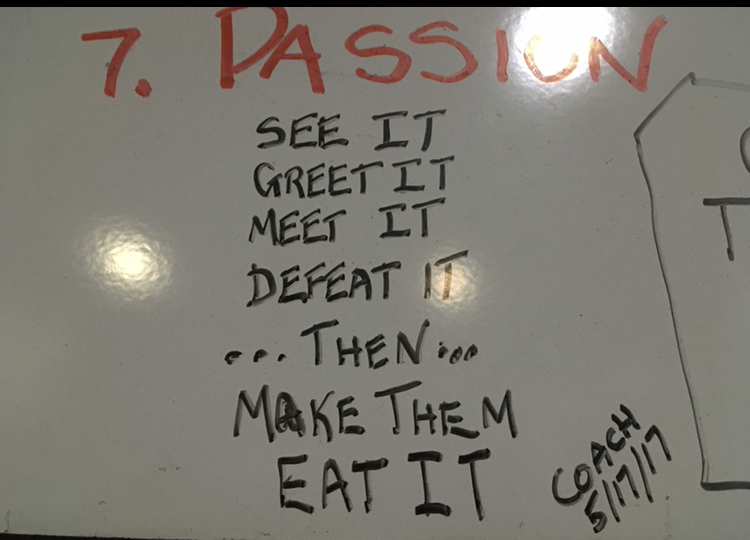 7. PASSION
SEE IT
GREET IT
MEET IT
DEFEAT IT
...THEN...
MAKE THEM
EAT IT
COACH
5/17/17
T